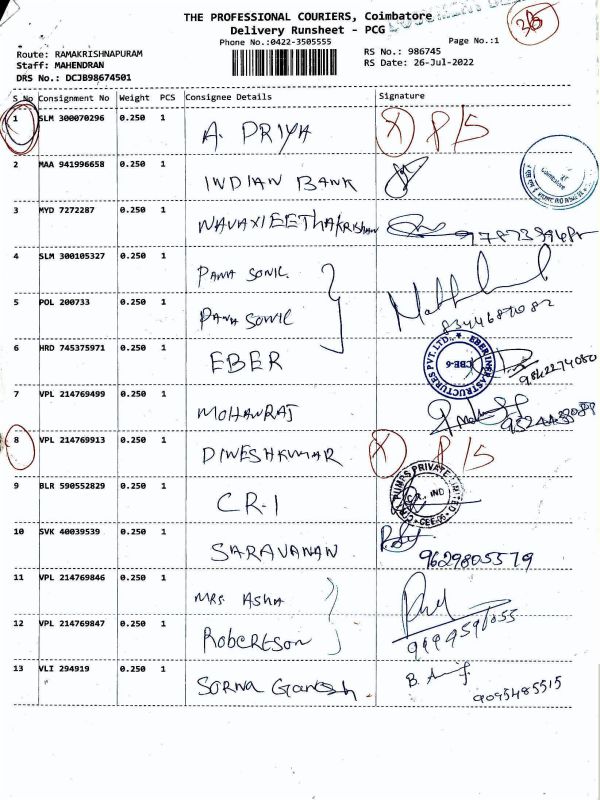 THE PROFESSIONAL COURIERS, Coimbatore
Delivery Runsheet - PCG
Phone No.:0422-3505555
Page No.:1
Route: RAMAKRISHNAPURAM
Staff: MAHENDRAN
DRS No.: DCJB98674501
RS No.: 986745
RS Date: 26-Jul-2022
S No Consignment No Weight PCS Consignee Details Signature
1 SLM 300070296 0.250 1 A. PRIYA X P/S
2 MAA 941996658 0.250 1 INDIAN BANK
Coimbatore
3 MYD 7272287 0.250 1
4 SLM 300105327 0.250 1 PANA SONIC
5 POL 200733 0.250 1 PANA SONIC
6 HRD 745375971 0.250 1 EBER
EBER INFRASTRUCTURES PVT. LTD. CBE-6
7 VPL 214769499 0.250 1 MOHANRAJ
8 VPL 214769913 0.250 1 DINESHKUMAR X P/S
9 BLR 590552829 0.250 1 C R-I
C.R.I. PUMPS PRIVATE LIMITED
10 SVK 40039539 0.250 1 SARAVANAN 9629805579
11 VPL 214769846 0.250 1 MRS ASHA
12 VPL 214769847 0.250 1 RobeRTSON
13 VLI 294919 0.250 1 SORNA Ganesh
9095485515